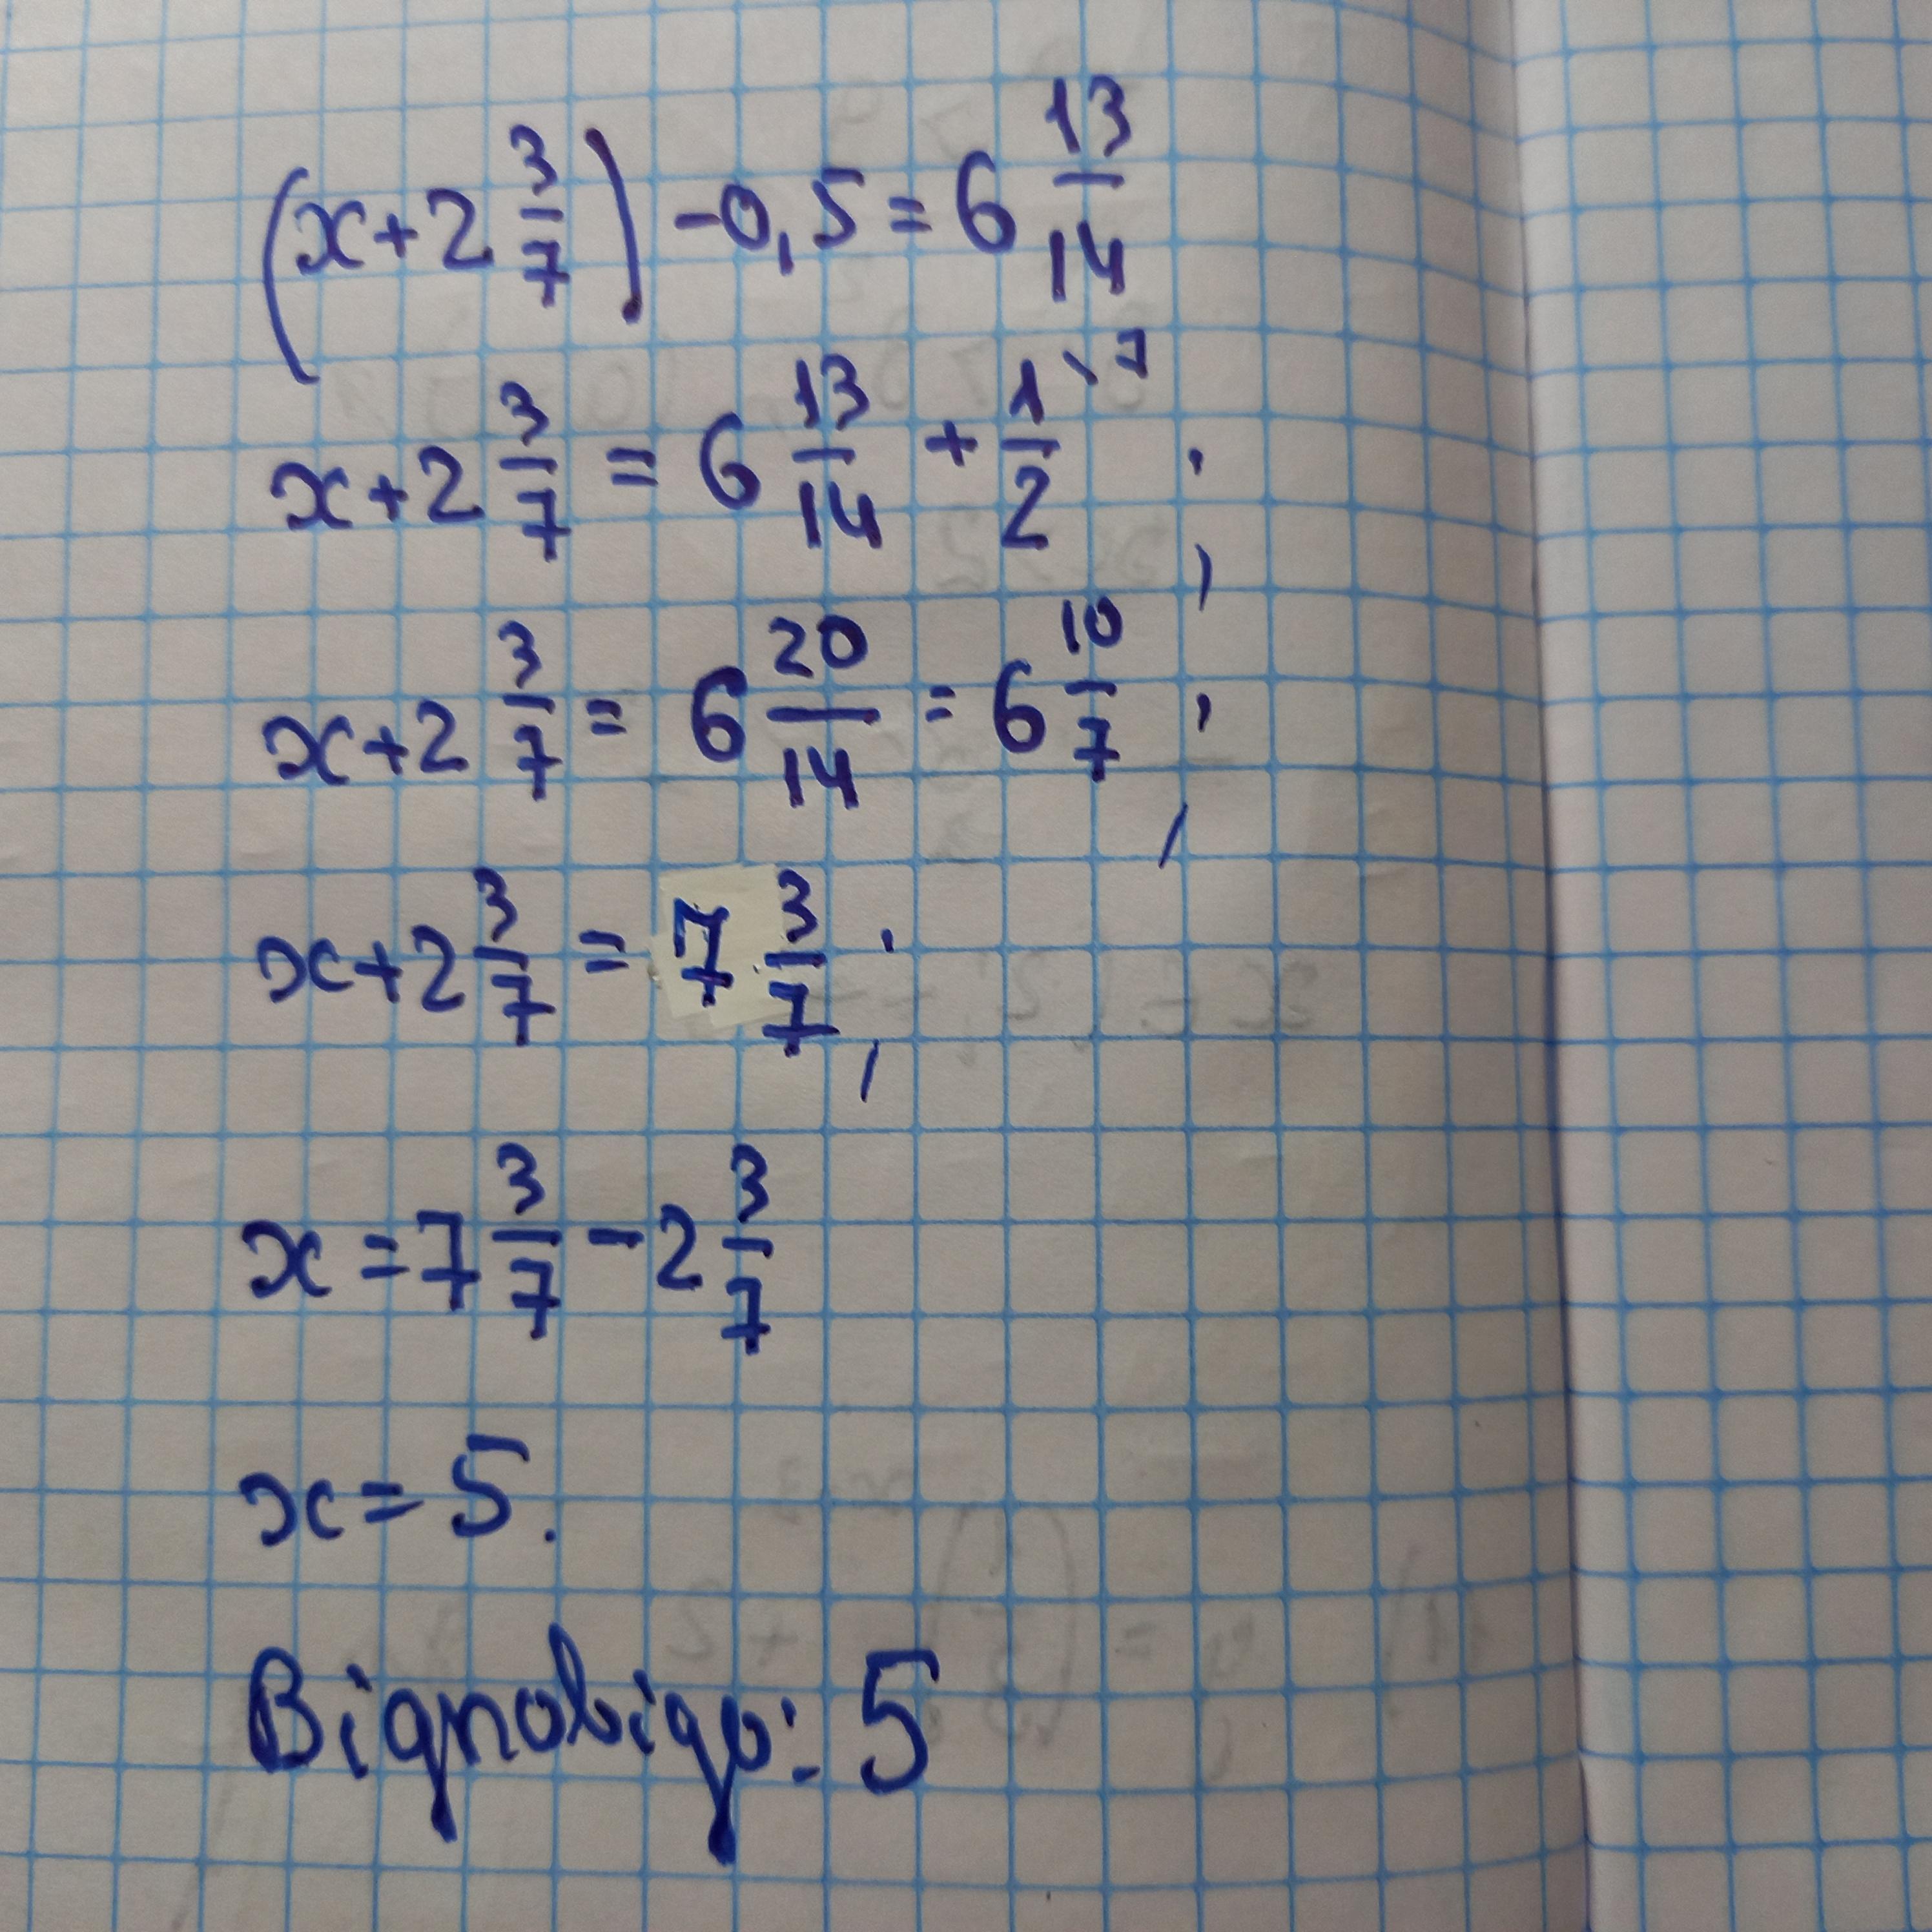 (x+2 3/7) -0,5 = 6 13/14
x+2 3/7 = 6 13/14 + 1/2 \7 ;
x+2 3/7 = 6 20/14 = 6 10/7 ;
x+2 3/7 = 7 3/7 ;
x = 7 3/7 - 2 3/7
x = 5.
Відповідь: 5